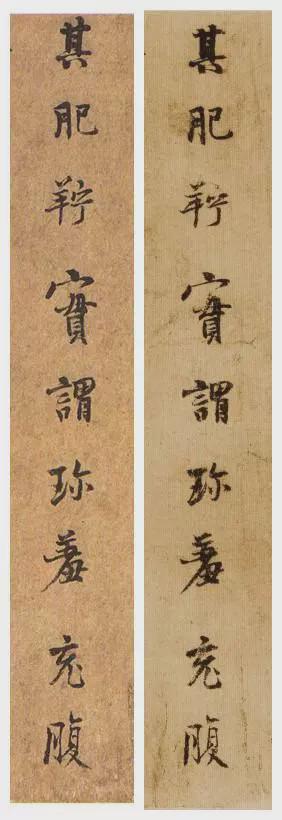 其肥羜實謂珍羞充腹
其肥羜實謂珍羞充腹